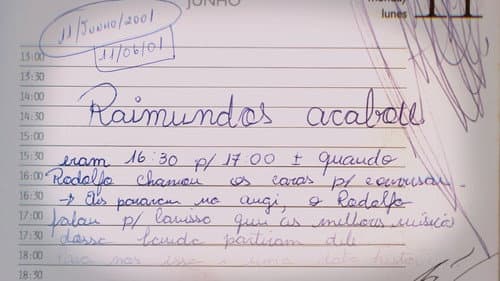 JUNHO
monday
lunes
11
11/Junho/2001
11/06/01
13:00
13:30
14:00
14:30
Raimundos acabou
15:00
15:30
eram 16:30 p/ 17:00 ± quando
16:00
Rodolfo chamou os caras p/ conversar.
16:30
→ Eles pararam no augi, o Rodolfo
17:00
falou p/ que as melhores músicas
17:30
dessa banda partiram dele
18:00
para nos isso é uma data
18:30